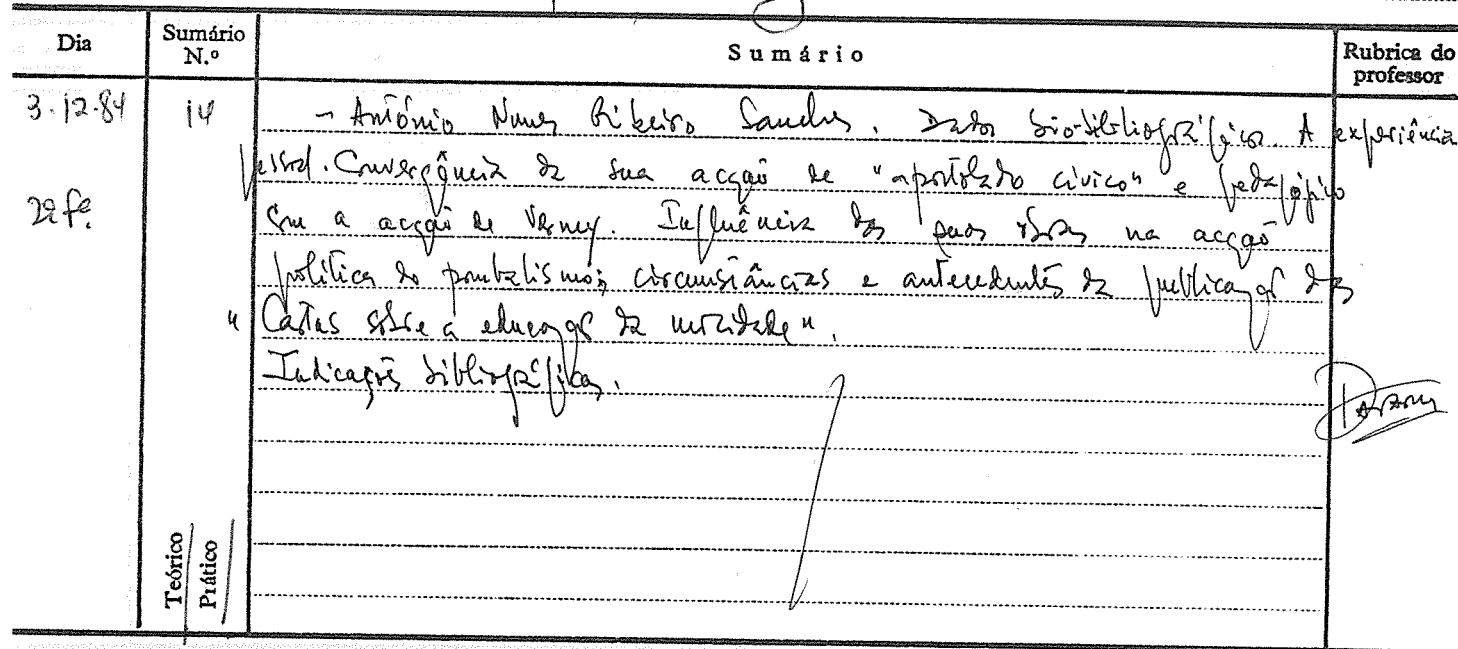 Dia
Sumário N.º
Sumário
Rubrica do professor
3-12-84
14
- António Nunes Ribeiro Sanches. Dados bio-bibliográficos. A experiência
pessoal. Convergência da sua acção de "apostolado cívico" e pedagógico
com a acção de Verney. Influência das suas obras na acção
política do pombalismo; circunstâncias e antecedentes da publicação das
"Cartas sobre a educação da mocidade".
Indicações bibliográficas.
2ª fª.
Teórico
Prático